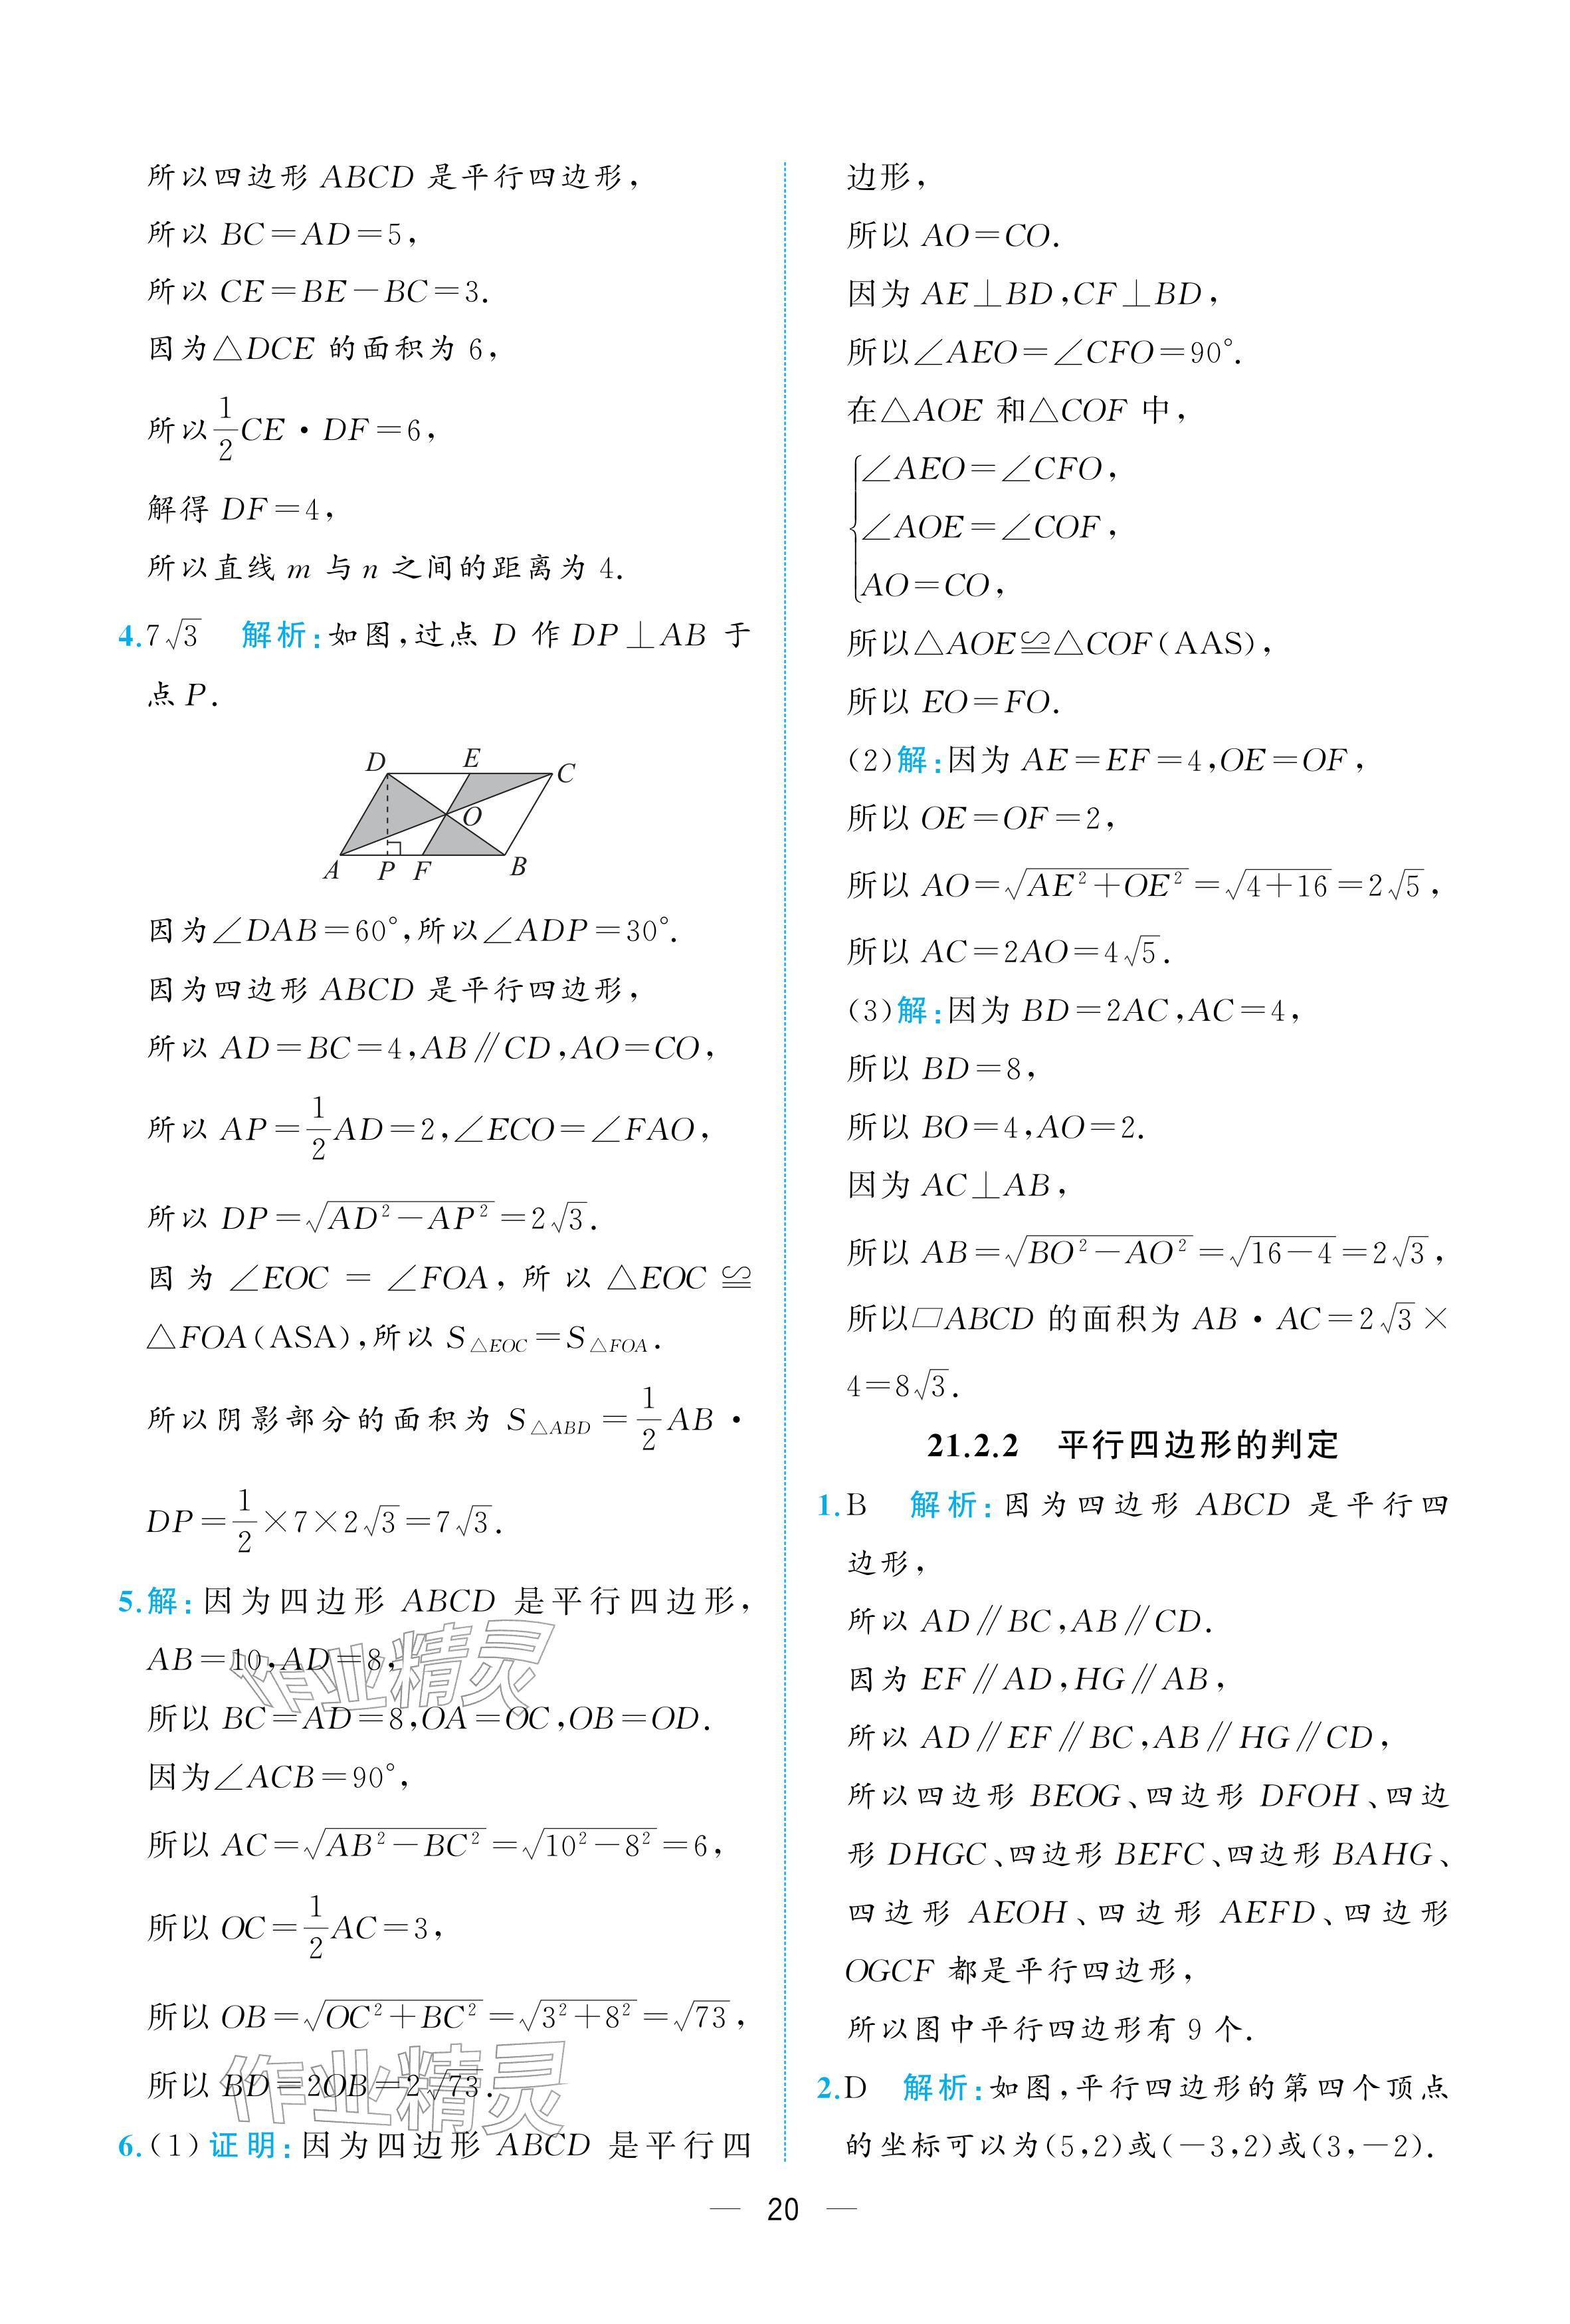 所以四边形 ABCD 是平行四边形，
所以 BC=AD=5，
所以 CE=BE-BC=3.
因为△DCE 的面积为 6，
所以$\frac{1}{2}$CE·DF=6，
解得 DF=4，
所以直线 m 与 n 之间的距离为 4.
4.7$\sqrt{3}$ 解析：如图，过点 D 作 DP⊥AB 于
点 P.
D E C
O
A P F B
因为∠DAB=60°，所以∠ADP=30°.
因为四边形 ABCD 是平行四边形，
所以 AD=BC=4，AB∥CD，AO=CO，
所以 AP=$\frac{1}{2}$AD=2，∠ECO=∠FAO，
所以 DP=$\sqrt{AD^2-AP^2}$=2$\sqrt{3}$.
因为 ∠EOC = ∠FOA，所以 △EOC ≌
△FOA(ASA)，所以 $S_{△EOC}$=$S_{△FOA}$.
所以阴影部分的面积为 $S_{△ABD}$=$\frac{1}{2}$AB·
DP=$\frac{1}{2}$×7×2$\sqrt{3}$=7$\sqrt{3}$.
5.解：因为四边形 ABCD 是平行四边形，
AB=10，AD=8，
所以 BC=AD=8，OA=OC，OB=OD.
因为∠ACB=90°，
所以 AC=$\sqrt{AB^2-BC^2}$=$\sqrt{10^2-8^2}$=6，
所以 OC=$\frac{1}{2}$AC=3，
所以 OB=$\sqrt{OC^2+BC^2}$=$\sqrt{3^2+8^2}$=$\sqrt{73}$，
所以 BD=2OB=2$\sqrt{73}$.
6.(1)证明：因为四边形 ABCD 是平行四
作业精灵
作业精灵
边形，
所以 AO=CO.
因为 AE⊥BD，CF⊥BD，
所以∠AEO=∠CFO=90°.
在△AOE 和△COF 中，
∠AEO=∠CFO，
∠AOE=∠COF，
AO=CO，
所以△AOE≌△COF(AAS)，
所以 EO=FO.
(2)解：因为 AE=EF=4，OE=OF，
所以 OE=OF=2，
所以 AO=$\sqrt{AE^2+OE^2}$=$\sqrt{4+16}$=2$\sqrt{5}$，
所以 AC=2AO=4$\sqrt{5}$.
(3)解：因为 BD=2AC，AC=4，
所以 BD=8，
所以 BO=4，AO=2.
因为 AC⊥AB，
所以 AB=$\sqrt{BO^2-AO^2}$=$\sqrt{16-4}$=2$\sqrt{3}$，
所以▱ABCD 的面积为 AB·AC=2$\sqrt{3}$×
4=8$\sqrt{3}$.
21.2.2 平行四边形的判定
1.B 解析：因为四边形 ABCD 是平行四
边形，
所以 AD∥BC，AB∥CD.
因为 EF∥AD，HG∥AB，
所以 AD∥EF∥BC，AB∥HG∥CD，
所以四边形 BEOG、四边形 DFOH、四边
形 DHGC、四边形 BEFC、四边形 BAHG、
四边形 AEOH、四边形 AEFD、四边形
OGCF 都是平行四边形，
所以图中平行四边形有 9 个.
2.D 解析：如图，平行四边形的第四个顶点
的坐标可以为(5,2)或(-3,2)或(3,-2).
— 20 —